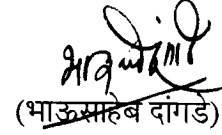 (भाऊसाहेब दांगडे)